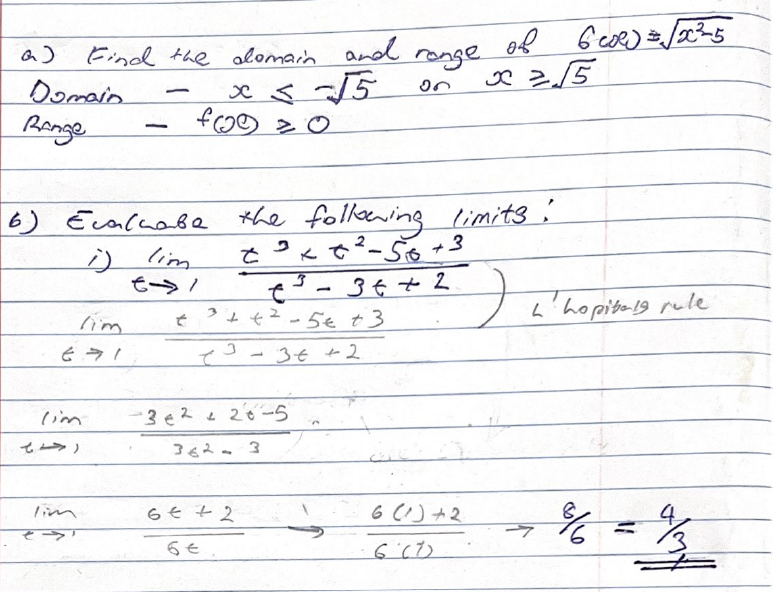 a) Find the domain and range of f(x) = √x²-5
Domain - x ≤ -√5 or x ≥ √5
Range - f(x) ≥ 0
b) Evaluate the following limits:
i) lim t→1 t³ + t² - 5t + 3 / t³ - 3t + 2
lim t→1 t³ + t² - 5t + 3 / t³ - 3t + 2 ) L'hopitals rule
lim t→1 3t² + 2t - 5 / 3t² - 3
lim t→1 6t + 2 / 6t → 6(1)+2 / 6(1) → 8/6 = 4/3